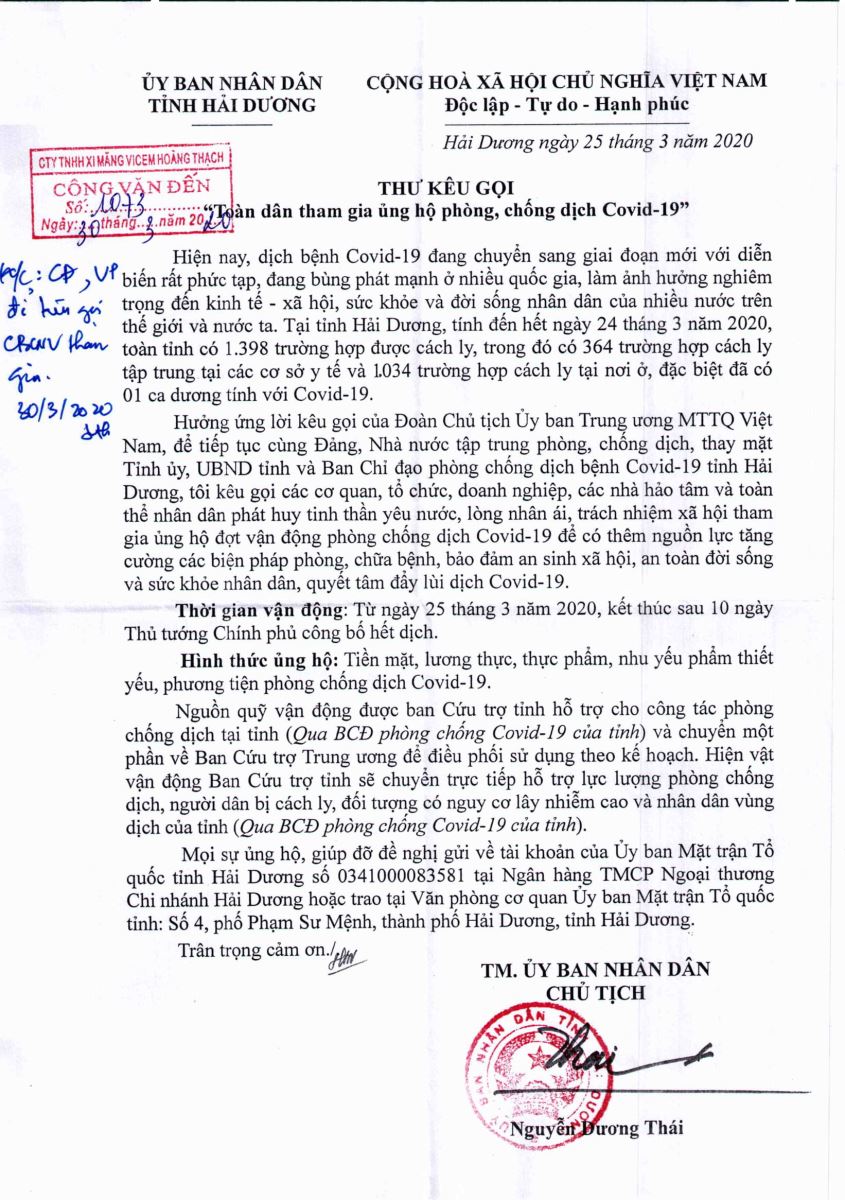 ỦY BAN NHÂN DÂN
TỈNH HẢI DƯƠNG
CỘNG HOÀ XÃ HỘI CHỦ NGHĨA VIỆT NAM
Độc lập - Tự do - Hạnh phúc
Hải Dương ngày 25 tháng 3 năm 2020
CTY TNHH XI MĂNG VICEM HOÀNG THẠCH
CÔNG VĂN ĐẾN
Số: 1073
Ngày: 30 tháng 3 năm 2020
THƯ KÊU GỌI
“Toàn dân tham gia ủng hộ phòng, chống dịch Covid-19”
K/c: CĐ, VP
CBCNV tham
gia.
30/3/2020
Hiện nay, dịch bệnh Covid-19 đang chuyển sang giai đoạn mới với diễn
biến rất phức tạp, đang bùng phát mạnh ở nhiều quốc gia, làm ảnh hưởng nghiêm
trọng đến kinh tế - xã hội, sức khỏe và đời sống nhân dân của nhiều nước trên
thế giới và nước ta. Tại tỉnh Hải Dương, tính đến hết ngày 24 tháng 3 năm 2020,
toàn tỉnh có 1.398 trường hợp được cách ly, trong đó có 364 trường hợp cách ly
tập trung tại các cơ sở y tế và 1.034 trường hợp cách ly tại nơi ở, đặc biệt đã có
01 ca dương tính với Covid-19.
Hưởng ứng lời kêu gọi của Đoàn Chủ tịch Ủy ban Trung ương MTTQ Việt
Nam, để tiếp tục cùng Đảng, Nhà nước tập trung phòng, chống dịch, thay mặt
Tỉnh ủy, UBND tỉnh và Ban Chỉ đạo phòng chống dịch bệnh Covid-19 tỉnh Hải
Dương, tôi kêu gọi các cơ quan, tổ chức, doanh nghiệp, các nhà hảo tâm và toàn
thể nhân dân phát huy tinh thần yêu nước, lòng nhân ái, trách nhiệm xã hội tham
gia ủng hộ đợt vận động phòng chống dịch Covid-19 để có thêm nguồn lực tăng
cường các biện pháp phòng, chữa bệnh, bảo đảm an sinh xã hội, an toàn đời sống
và sức khỏe nhân dân, quyết tâm đẩy lùi dịch Covid-19.
Thời gian vận động: Từ ngày 25 tháng 3 năm 2020, kết thúc sau 10 ngày
Thủ tướng Chính phủ công bố hết dịch.
Hình thức ủng hộ: Tiền mặt, lương thực, thực phẩm, nhu yếu phẩm thiết
yếu, phương tiện phòng chống dịch Covid-19.
Nguồn quỹ vận động được ban Cứu trợ tỉnh hỗ trợ cho công tác phòng
chống dịch tại tỉnh (Qua BCĐ phòng chống Covid-19 của tỉnh) và chuyển một
phần về Ban Cứu trợ Trung ương để điều phối sử dụng theo kế hoạch. Hiện vật
vận động Ban Cứu trợ tỉnh sẽ chuyển trực tiếp hỗ trợ lực lượng phòng chống
dịch, người dân bị cách ly, đối tượng có nguy cơ lây nhiễm cao và nhân dân vùng
dịch của tỉnh (Qua BCĐ phòng chống Covid-19 của tỉnh).
Mọi sự ủng hộ, giúp đỡ đề nghị gửi về tài khoản của Ủy ban Mặt trận Tổ
quốc tỉnh Hải Dương số 0341000083581 tại Ngân hàng TMCP Ngoại thương
Chi nhánh Hải Dương hoặc trao tại Văn phòng cơ quan Ủy ban Mặt trận Tổ quốc
tỉnh: Số 4, phố Phạm Sư Mệnh, thành phố Hải Dương, tỉnh Hải Dương.
Trân trọng cảm ơn./
TM. ỦY BAN NHÂN DÂN
CHỦ TỊCH
Nguyễn Dương Thái